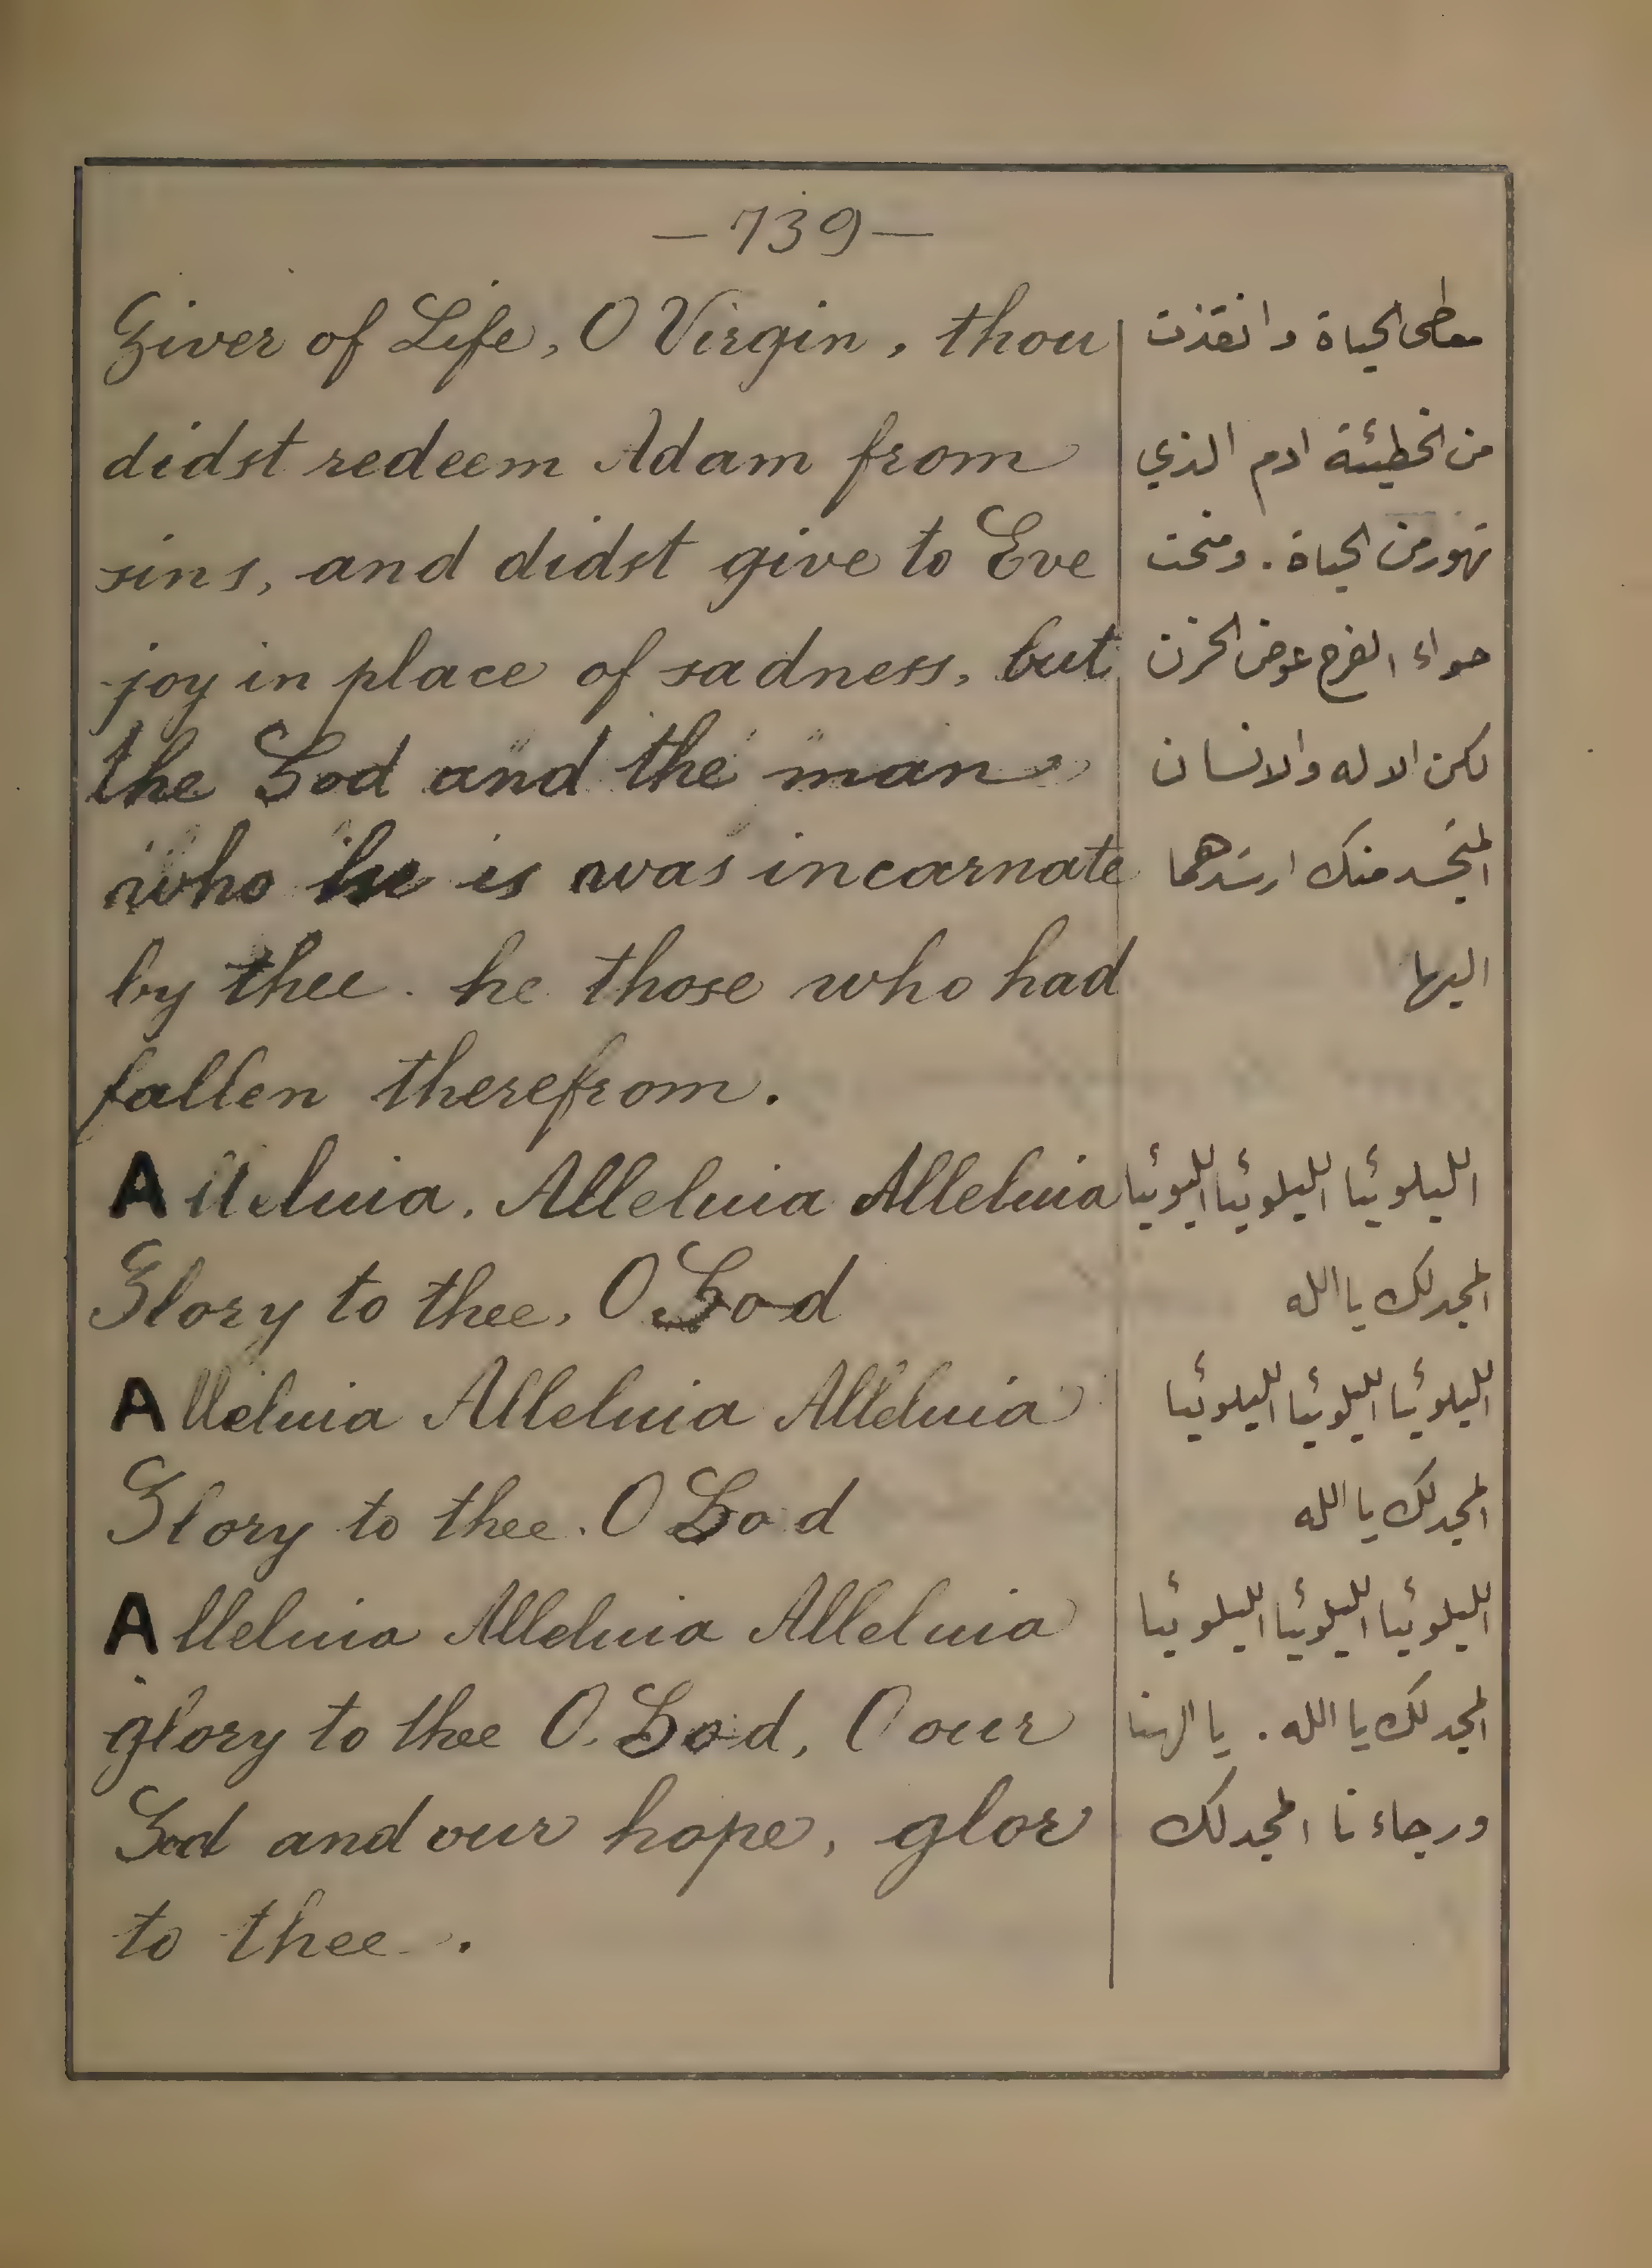 —739—
Giver of Life, O Virgin, thou
didst redeem Adam from
sins, and didst give to Eve
joy in place of sadness, but
the God and the man
who he is was incarnate
by thee. he those who had
fallen therefrom.
Alleluia, Alleluia Alleluia
Glory to thee, O God
Alleluia Alleluia Alleluia
Glory to thee. O God
Alleluia Alleluia Alleluia
glory to thee O. God, O our
God and our hope, glor
to thee.
معطى الحياة وانقذت
من الخطيئة ادم الذي
تهور من الحياة. ومنحت
حواء الفرح عوض الحزن
لكن الاله والانسان
المتجسد منك ارشدهما
اليها
الليلوئيا الليلوئيا الليوئيا
المجد لك يا الله
الليلوئيا الليلوئيا الليلوئيا
المجد لك يا الله
الليلوئيا الليلوئيا الليلوئيا
المجد لك يا الله. يا الهنا
ورجاءنا المجد لك